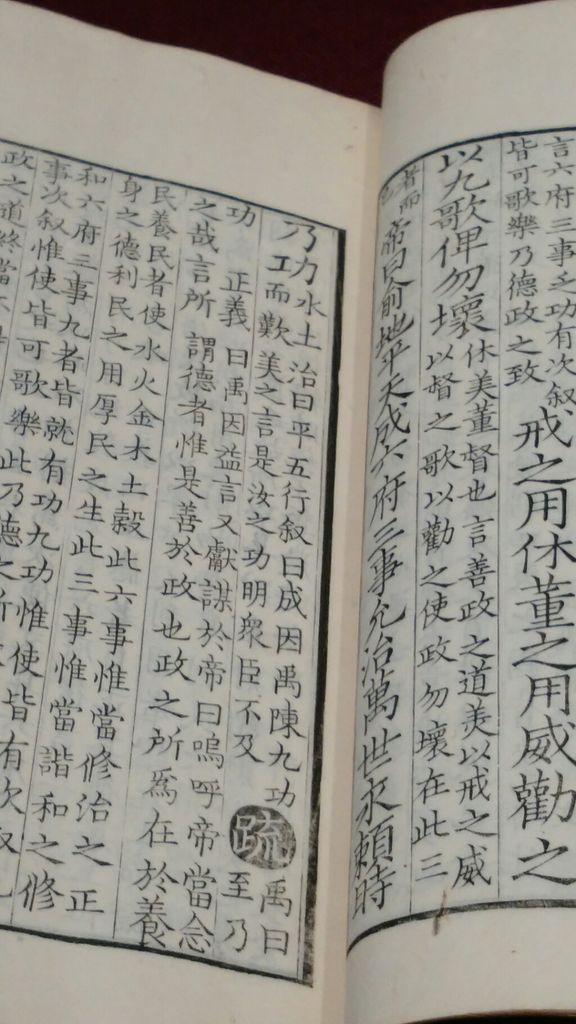 言六府三事之功有次叙
皆可歌樂乃德政之致
戒之用休董之用威勸之
以九歌俾勿壞
休美董督也言善政之道美以戒之威
以督之歌以勸之使政勿壞在此三
者而
已
帝曰俞地平天成六府三事允治萬世永賴時
乃功
水土治曰平五行叙曰成因禹陳九功
而歎美之言是汝之功明衆臣不及
疏
禹曰
至乃
功 正義曰禹因益言又獻謀於帝曰嗚呼帝當念
之哉言所謂德者惟是善於政也政之所爲在於養
民養民者使水火金木土穀此六事惟當修治之正
身之德利民之用厚民之生此三事惟當諧和之修
和六府三事九者皆就有功九功惟使皆有次叙九
事次叙惟使皆可歌樂此乃德之所
政之道終當不